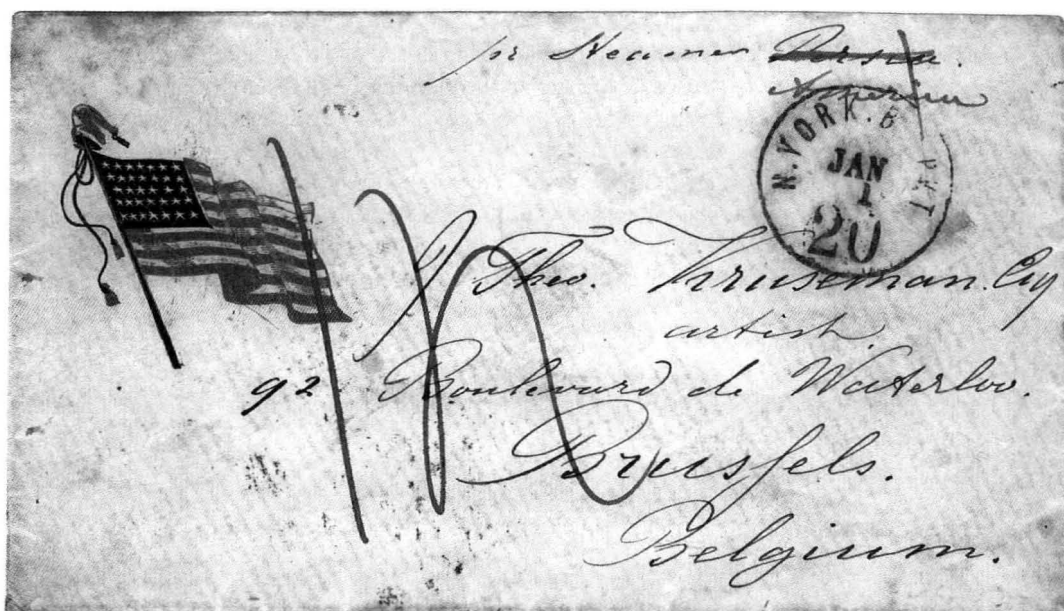 pr Steamer Persia.
America
N. YORK. B PKT
JAN
1
20
J Theo. Kruseman. Esq
artist.
92 Boulevard de Waterloo.
Brussels.
Belgium.